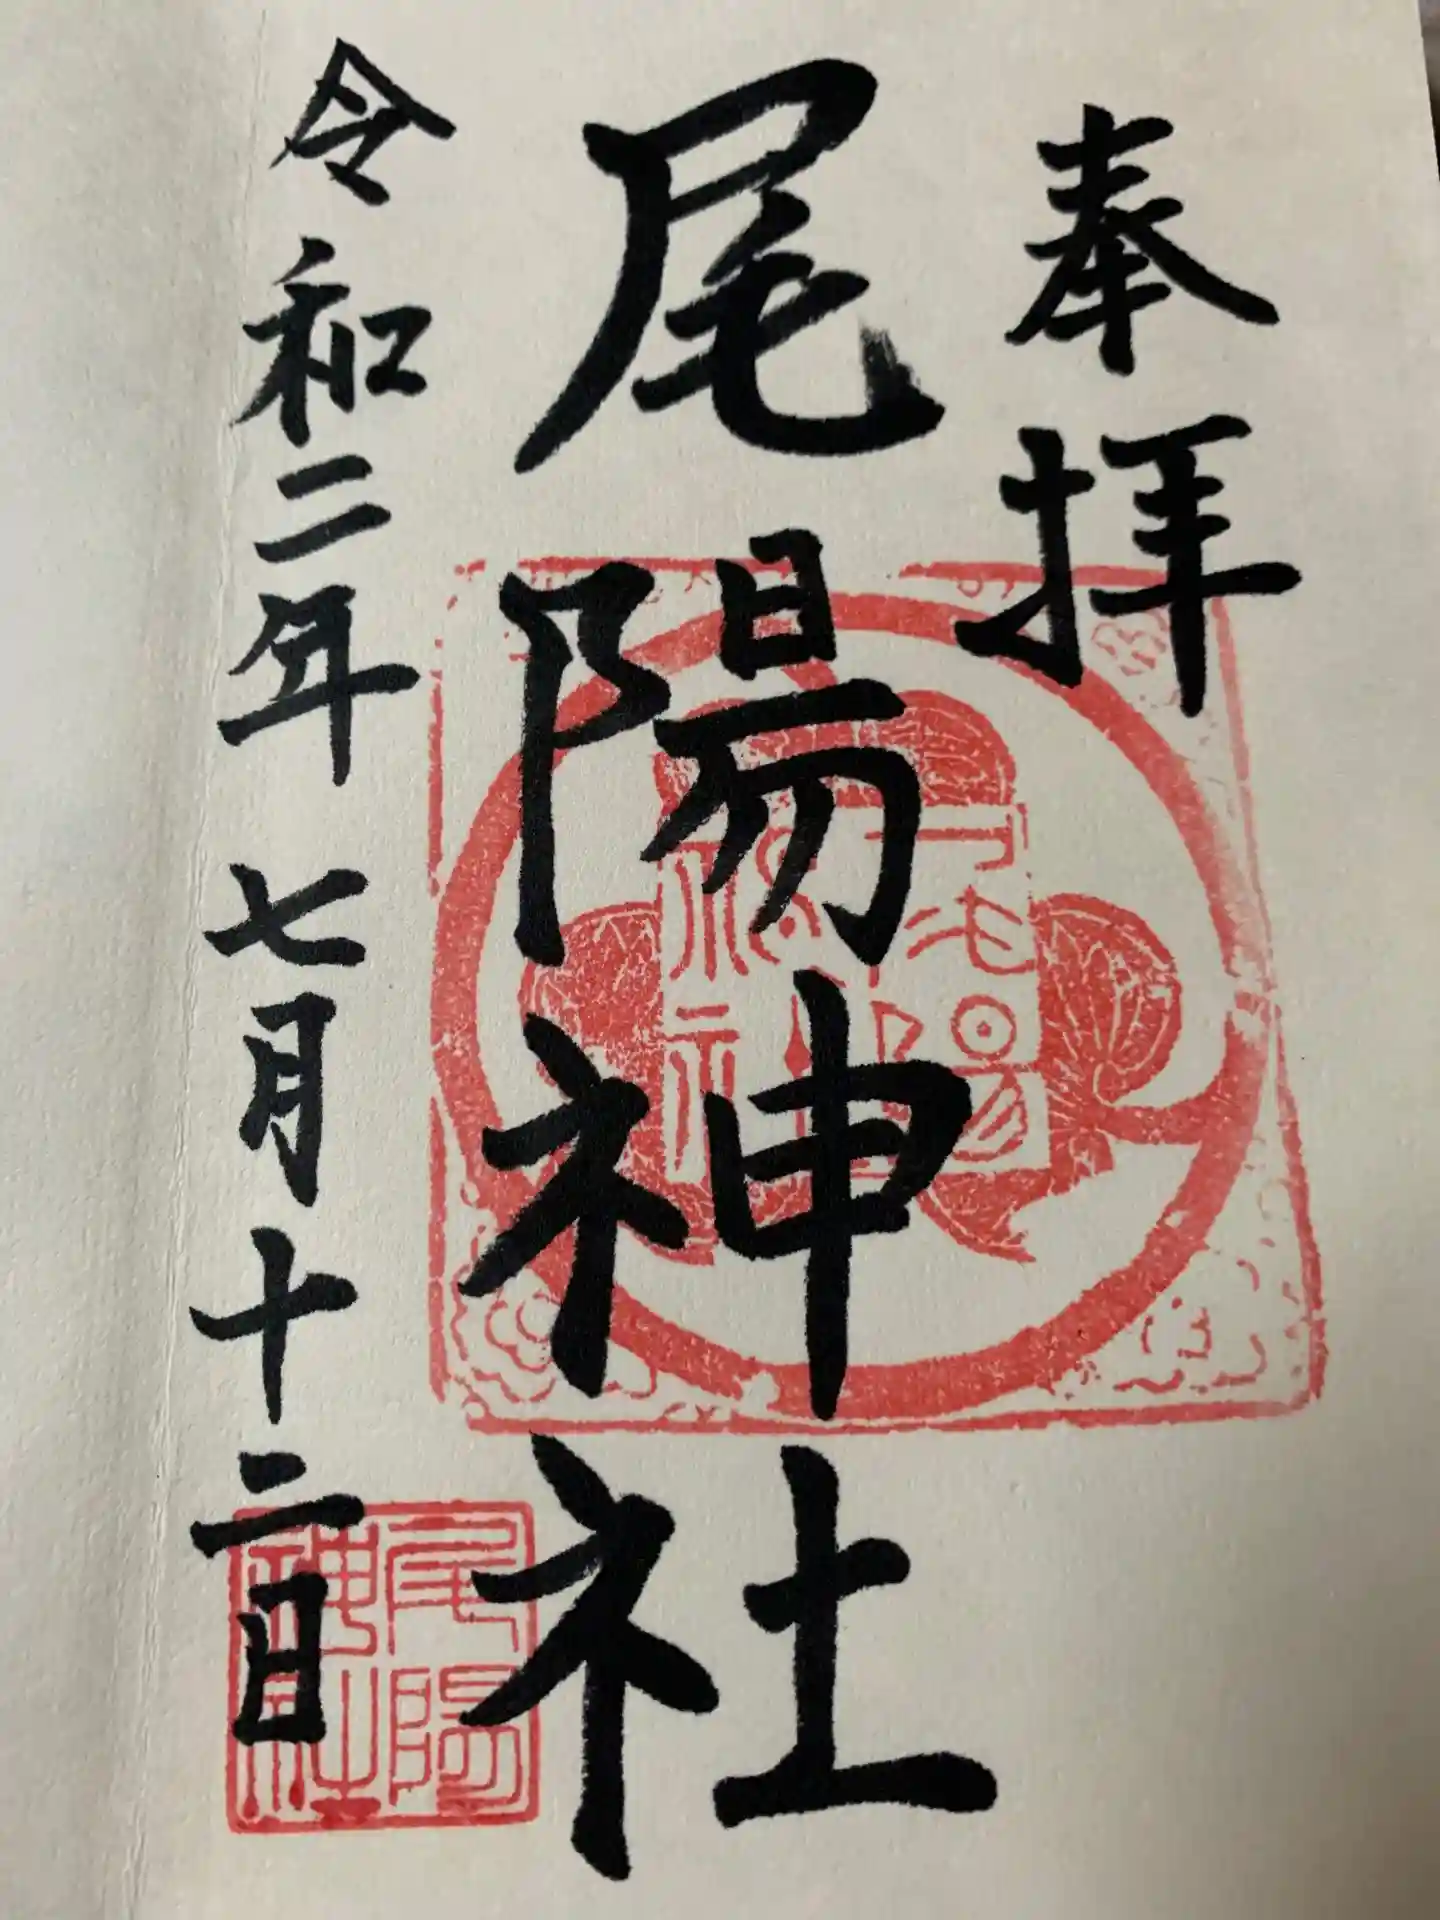 奉拝
尾陽神社
令和二年七月十二日
尾陽
神社
尾陽
神社